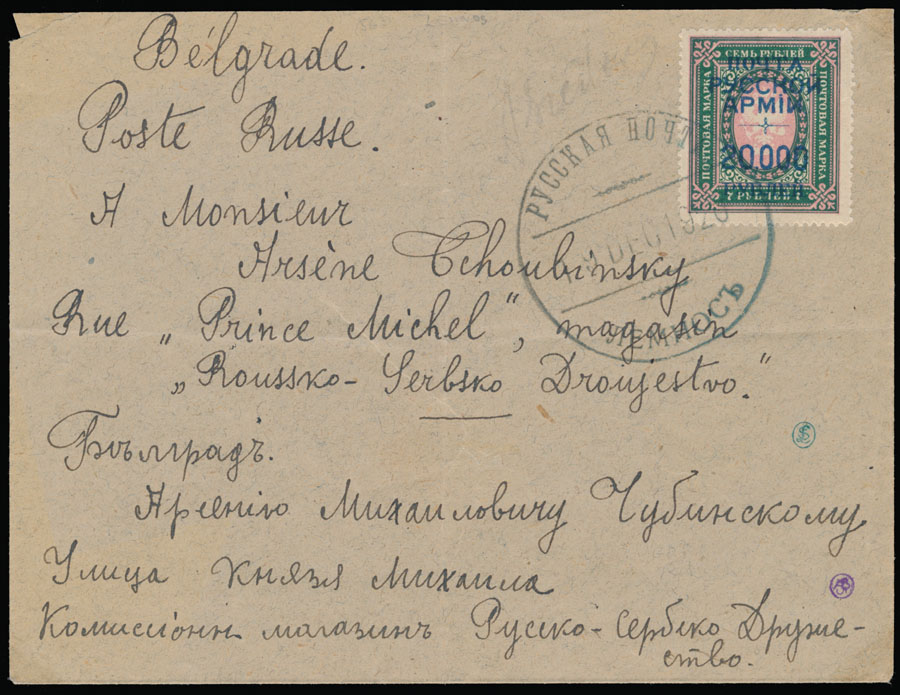 Bélgrade.
Poste Russe.
A Monsieur
Arsène Tchoubinsky
Rue „Prince Michel", magasin
„Roussko-Serbsko Droujestvo."
Бѣлградъ.
Арсенію Михаиловичу Чубинскому
Улица Князя Михаила
Комиссіонн магазинъ Русско-Сербско Друже-
ство.
СЕМЬ РУБЛЕЙ
ПОЧТОВАЯ МАРКА
ПОЧТОВАЯ МАРКА
ПОЧТА
РУССКОЙ
АРМІИ
20.000
РУБЛЕЙ
7 РУБЛЕЙ 7
РУССКАЯ ПОЧТА
DEC 1920
ЛЕМНОСЪ